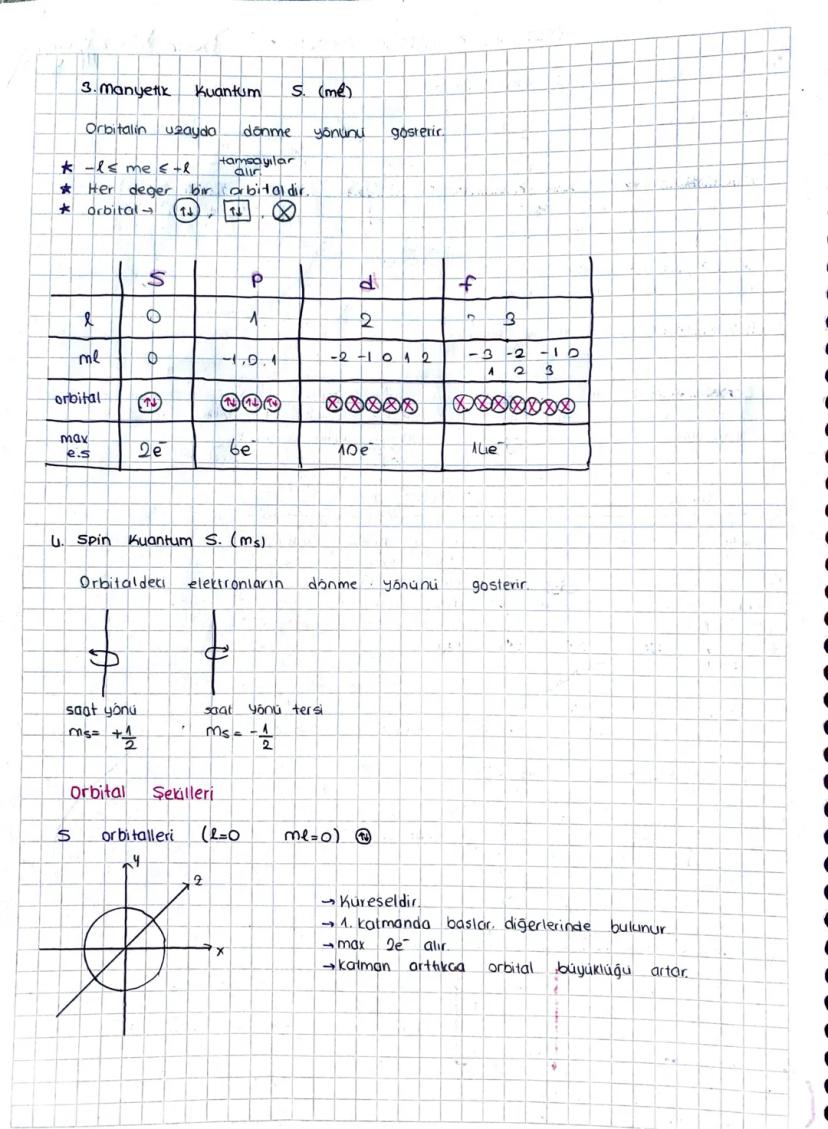 3. Manyetik Kuantum S. (mℓ)
Orbitalin uzayda dönme yönünü gösterir.
* -ℓ ≤ mℓ ≤ +ℓ tamsayılar alır.
* Her değer bir orbitaldir.
* orbital → ⇅, ⇅, X
S P d f
ℓ 0 1 2 3
mℓ 0 -1, 0, 1 -2 -1 0 1 2 -3 -2 -1 0 1 2 3
orbital ⇅ ⇅ ⇅ ⇅ X X X X X X X X X X X X
max e.s 2e⁻ 6e⁻ 10e⁻ 14e⁻
4. Spin Kuantum S. (ms)
Orbitaldeki elektronların dönme yönünü gösterir.
saat yönü saat yönü tersi
ms = +1/2 ms = -1/2
Orbital Şekilleri
S orbitalleri (ℓ=0 mℓ=0) ⇅
y
z
x
→ Küreseldir.
→ 1. katmanda başlar. diğerlerinde bulunur
→ max 2e⁻ alır.
→ katman arttıkça orbital büyüklüğü artar.